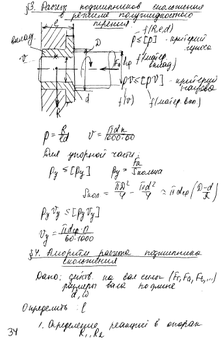 §3. Расчёт подшипников скольжения
в режиме полужидкостного
трения
вклад.
D
f(R, ed)
p ≤ [p] - критерий
износа
f(матер
вклад)
pV ≤ [pV] - критерий
нагрева
f(V) f(матер
d
p = R/ld V = πdn/1000·60
Для упорной части:
py ≤ [py] py = Fa/Sкольца
Sкол = πD²/4 - πd²/4 = πdср(D-d/2)
PyVy ≤ [PyVy]
Vy = πdср n/60·1000
§4. Алгоритм расчёта подшипника
скольжения
Дано: действ. на вал силы (Ft, Fa, Fr, ...)
размеры вала
d,
Определить l
1. Определение реакций в опорах
R1, R2
34